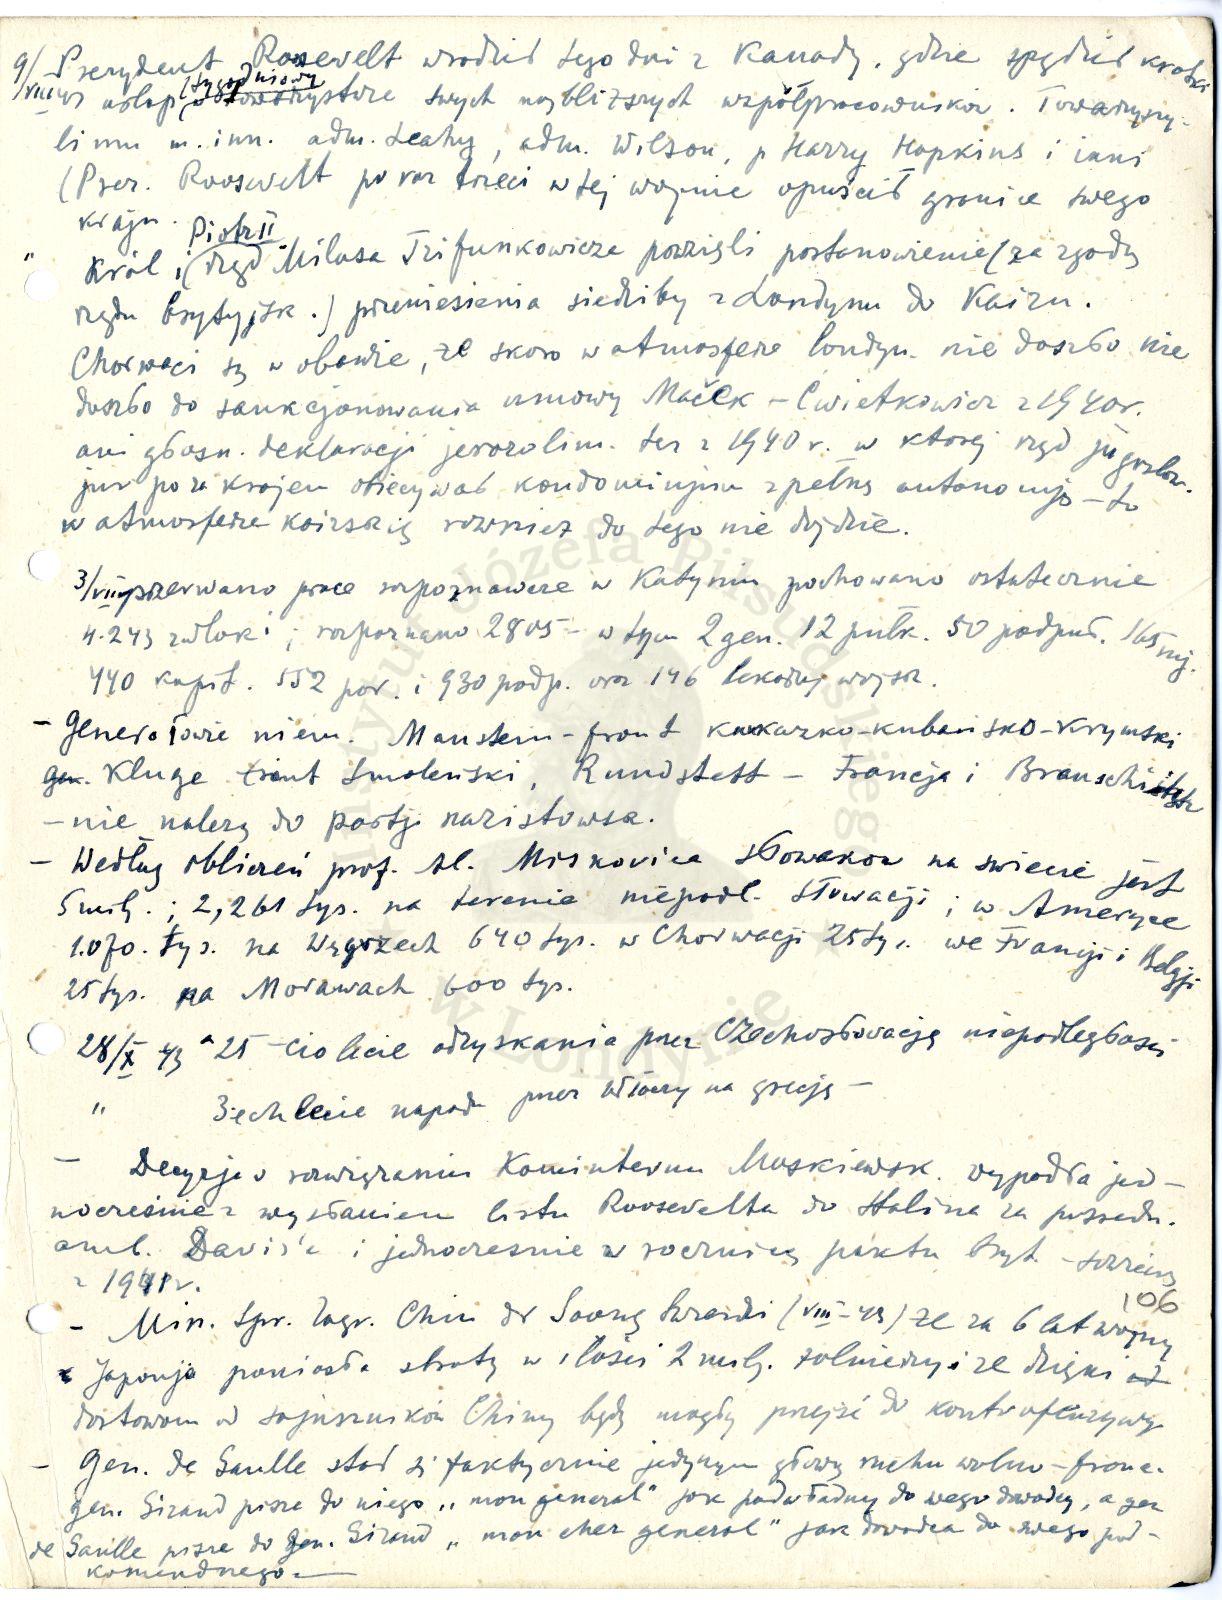 9/VIII 43 Prezydent Roosevelt wrócił tego dni z Kanady, gdzie spędził krótki
(tygodniowy
urlop w towarzystwie swych najbliższych współpracowników. Towarzyszy-
li mu m. inn. adm. Leahy, adm. Wilson, p Harry Hopkins i inni
(Prez. Roosevelt po raz trzeci w tej wojnie opuścił granice swego
kraju.
Piotr II
" Król i rząd Milosa Trifunkowicza powzięli postanowienie (za zgodą
rządu brytyjsk.) przeniesienia siedziby z Londynu do Kairu.
Chorwaci są w obawie, że skoro w atmosferze londyn. nie doszło nie
doszło do sankcjonowania umowy Maček – Cwietkowicz z 1940r.
ani głosn. deklaracji jerozolim. też z 1940 r. w której rząd jugosłow.
już poza krajem obiecywał kondominjum z pełną autonomją – to
w atmosferze kairskiej również do tego nie dojdzie.
3/VII przerwano prace rozpoznawcze w Katyniu pochowano ostatecznie
4.243 zwłoki; rozpoznano 2805 – w tym 2 gen. 12 pułk. 50 podpuł. 165 mj.
440 kapit. 552 por. i 930 podp. oraz 146 lekarzy wojsk.
– Generałowie niem. Manstein – front kaukazko-kubańsko-krymski
gen. Kluge front smoleński, Rundstett – Francja i Brauschitsch
– nie należą do partji nazistowsk.
– Według obliczeń prof. Al. Miskovica Słowaków na świecie jest
5 milj.; 2,261 tys. na terenie niepodl. Słowacji; w Ameryce
1.070. tys. na Węgrzech 640 tys. w Chorwacji 25 tys. we Francji i Belgji
25 tys. na Morawach 600 tys.
28/X 43 25-cio lecie odzyskania przez Czechosłowację niepodległości
" 3ech lecie napadu przez Włochy na Grecję –
– Decyzja o rozwiązaniu Kominternu Moskiewsk. wypadła jed-
nocześnie z wysłaniem listu Roosevelta do Stalina za pośredn.
amb. Davis'a i jednocześnie w rocznicę paktu bryt. – sowieck
z 1941r.
106
– Min. Spr. Zagr. Chin dr Soong twierdzi (VIII-43) że za 6 lat wojny
Japonja poniosła straty w ilości 2 milj. żołnierzy i że dzięki od
dostawom od sojuszników Chiny będą mogły przejść do kontrofenzywy
– Gen. de Gaulle stał się faktycznie jedynym głową ruchu wolno-franc.
gen. Giraud pisze do niego „mon general" jak podwładny do swego dowódcy, a gen
de Gaulle pisze do gen. Giraud „mon cher general" jak dowódca do swego pod-
komendnego –
Instytut Józefa Piłsudskiego w Londynie